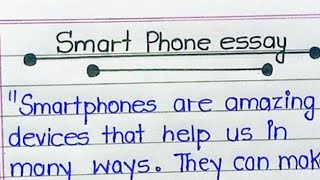 Smart Phone essay
"Smartphones are amazing
devices that help us in
many ways. They can mak